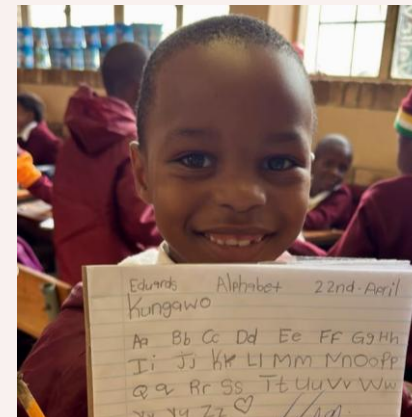 Eduards Alphabet 22nd-April
Kungawo
Aa Bb Cc Dd Ee FF Gg Hh
Ii Jj Kk Ll Mm Nn Oo Pp
Qq Rr Ss Tt Uu Vv Ww
Xx Yy Zz ♡